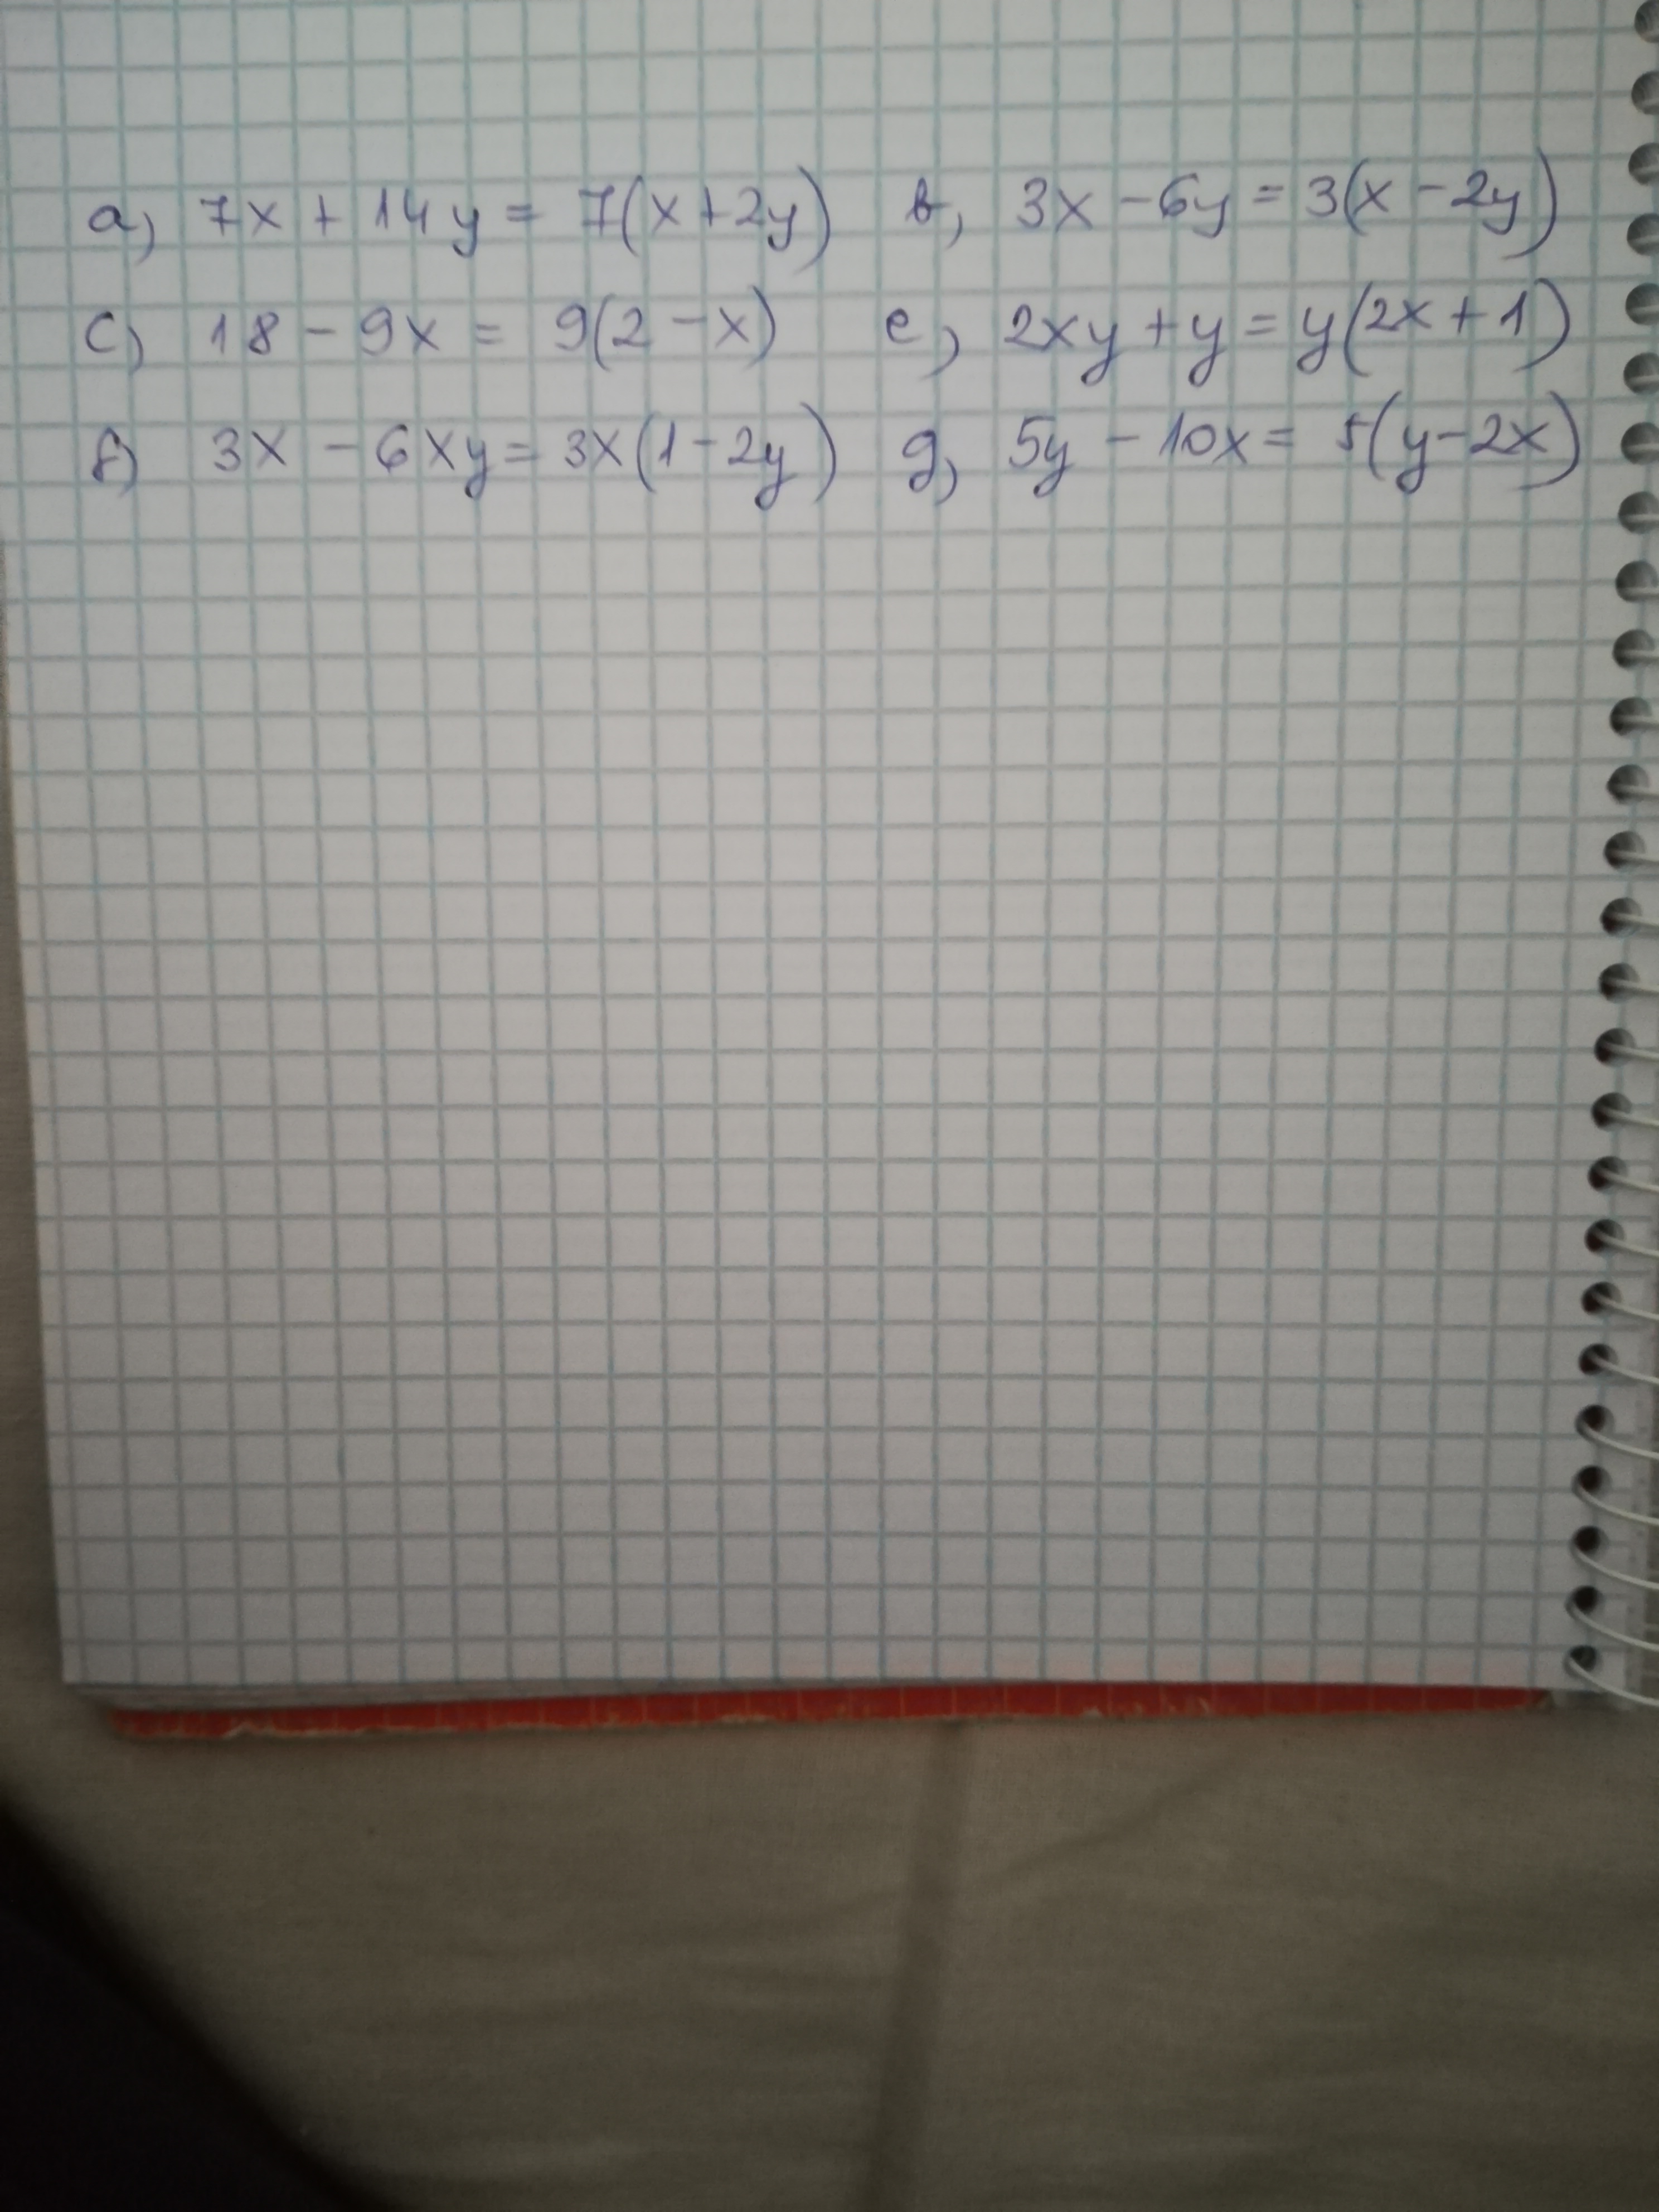 a) 7x + 14y = 7(x+2y) b) 3x - 6y = 3(x - 2y)
c) 18 - 9x = 9(2 - x) e) 2xy + y = y(2x + 1)
f) 3x - 6xy = 3x(1 - 2y) g) 5y - 10x = 5(y - 2x)